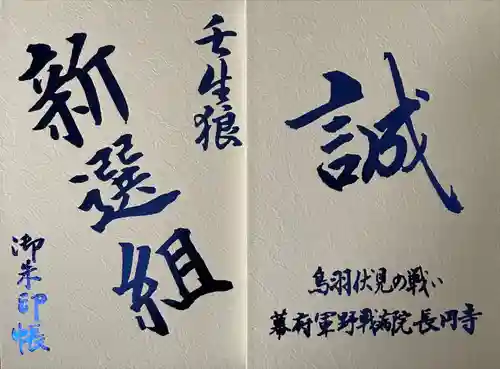 誠
鳥羽伏見の戦い
幕府軍野戦病院長円寺
壬生狼
新選組
御朱印帳